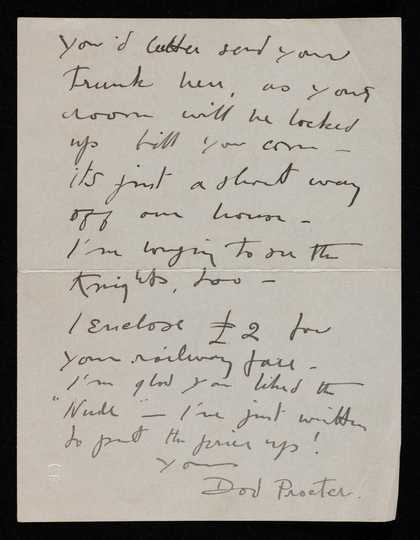 you'd better send your
trunk here, as your
room will be locked
up till you come –
its just a short way
off our house –
I'm longing to see the
Knights, too –
I enclose £2 for
your railway fare –
I'm glad you liked the
"Nude" – I've just written
to put the price up!
Yours
Dod Procter.